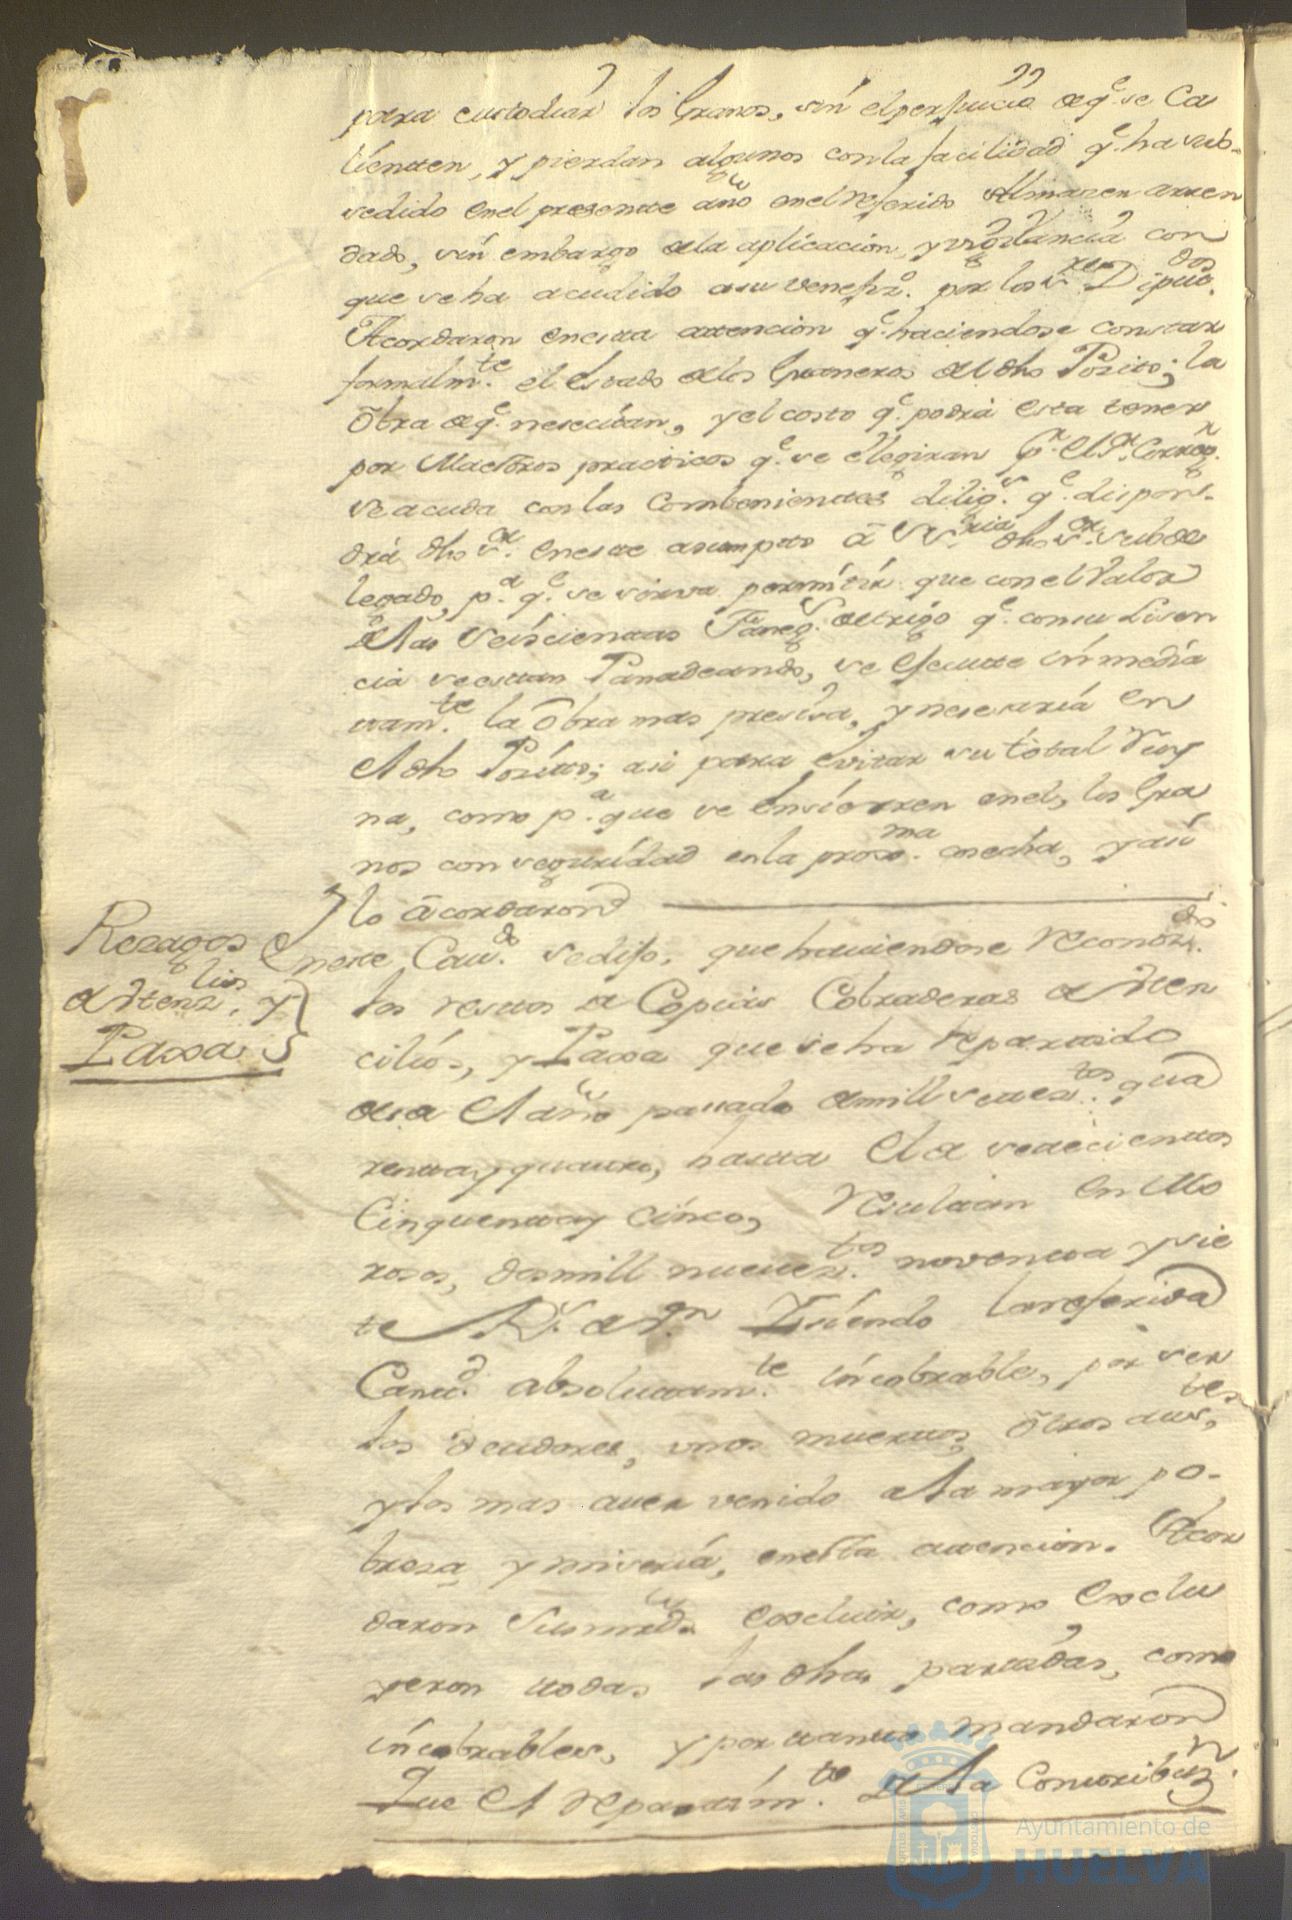 para custodiar los Granos, sin el perjuicio de q.e se Ca
lienten, y pierdan algunos con la facilidad q.e ha sub-
sedido en el presente año en el referido Almazen arren
dado, sin embargo de la aplicacion, y vigilancia con
que se ha acudido a su venefiz.o por los s.res Diput.dos
Acordaron en esta atencion q.e haciendose constar
formalm.te el Estado de los Graneros del dho Pozito; la
obra de q.e nesecitan, y el costo q.e podrá esta tener
por Maestros practicos q.e se elegiran p.r el S.r Correg.r
se acuda con las Combenientes dilig.s q.e dispon-
drá dho s.r en este asumpto á S S.ria dho s.or subde
legado, p.a q.e se sirva permitir que con el Valor
de las Seiscientas Faneg.s de trigo q.e con su Lisen
cia se estan Panadeando, se Ejecute in media
tam.te la obra mas presisa, y nesesaria en
el dho Pozito; asi para Evitar su total Ruy
na, como p.a que se Ensierren en el, los Gra
nos con seguridad en la prox.ma cosecha, y asi
lo acordaron
Rezagos
de Vtenz.lios y
Paxa
En este Cav.do se dijo, que haviendose reconoz.do
los restos de Copias Cobraderas de Vten
cilios, y Paxa que se ha repartido
desde el año pasado de mill setez.tos qua
renta y quatro, hasta el de setecientos
Cinquenta y Cinco, Resultan en Mo
rosos, dos mill nuevez.tos noventa y sie
te R.s de v.n Y siendo la referida
Cant.d absolutam.te incobrable, por ser
los deudores, unos muertos, otros aus.tes
y los mas aver venido a la mayor po-
breza y miseria, en esta atencion. Acor
daron Sus mrds. Excluir, como Exclu
yeron todas las dhas partidas, como
incobrables, y por tanto mandaron
Que el repartim.to de la Contribuz.n
Ayuntamiento de
HUELVA